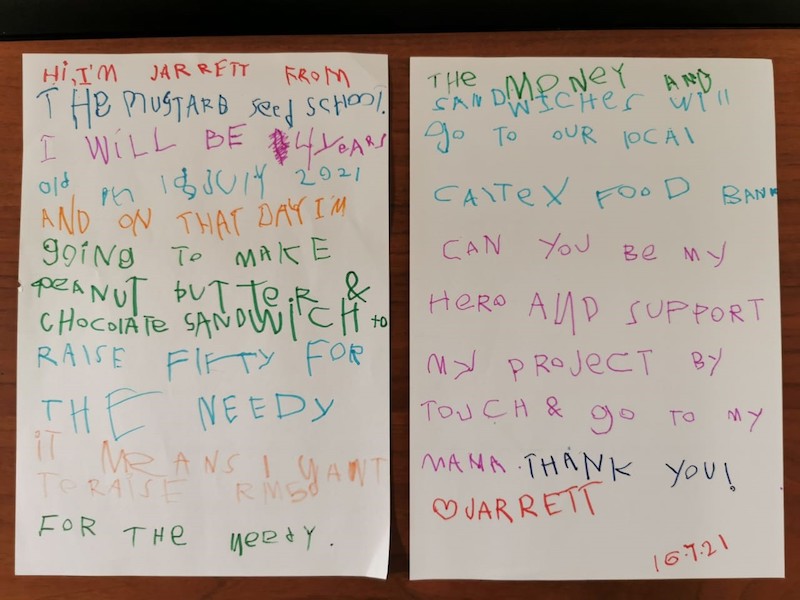 Hi, I'M JARRETT FROM
THE MUSTARD seed SCHOOL.
I WILL BE 4 yeARS
old on 18 JULY 2021
AND ON THAT DAY I'M
gOiNg TO MAKE
PEANUT BUTTER &
CHOCOLATE SANDWICH to
RAISE FIFTY FOR
THE NEEDY
IT MEANS I WANT
TO RAISE RM50
FOR THe NeedY.
THe MONeY AND
SANDWICHeS WIll
go TO OUR lOCAl
CALTEX FOOD BANK
CAN YOU Be MY
HeRO AND SUPPORT
MY PROJECT BY
TOUCH & gO TO MY
MAMA. THANK YOU!
♡JARRETT
16.7.21